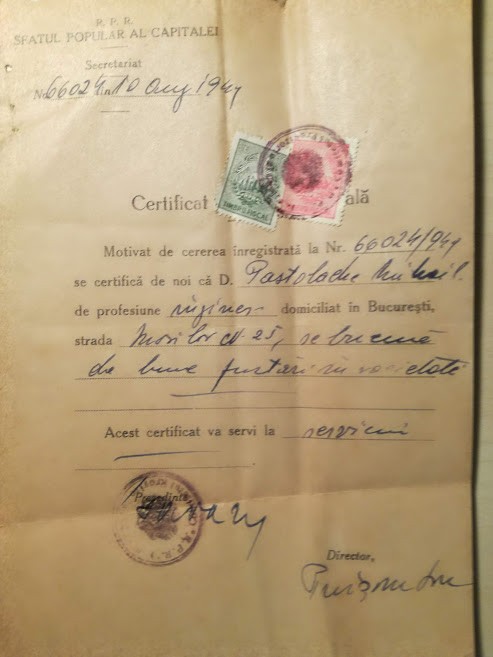 R. P. R.
SFATUL POPULAR AL CAPITALEI
Secretariat
Nr. 66024 din 10 Aug 194
TIMBRU FISCAL
Certificat ală
Motivat de cererea înregistrată la Nr. 66024/94
se certifică de noi că D. Pastolache Mihail
de profesiune inginer domiciliat în București,
strada Morilor N. 25, se bucură
de bune purtări în societate
Acest certificat va servi la serviciu
Președinte
Director,